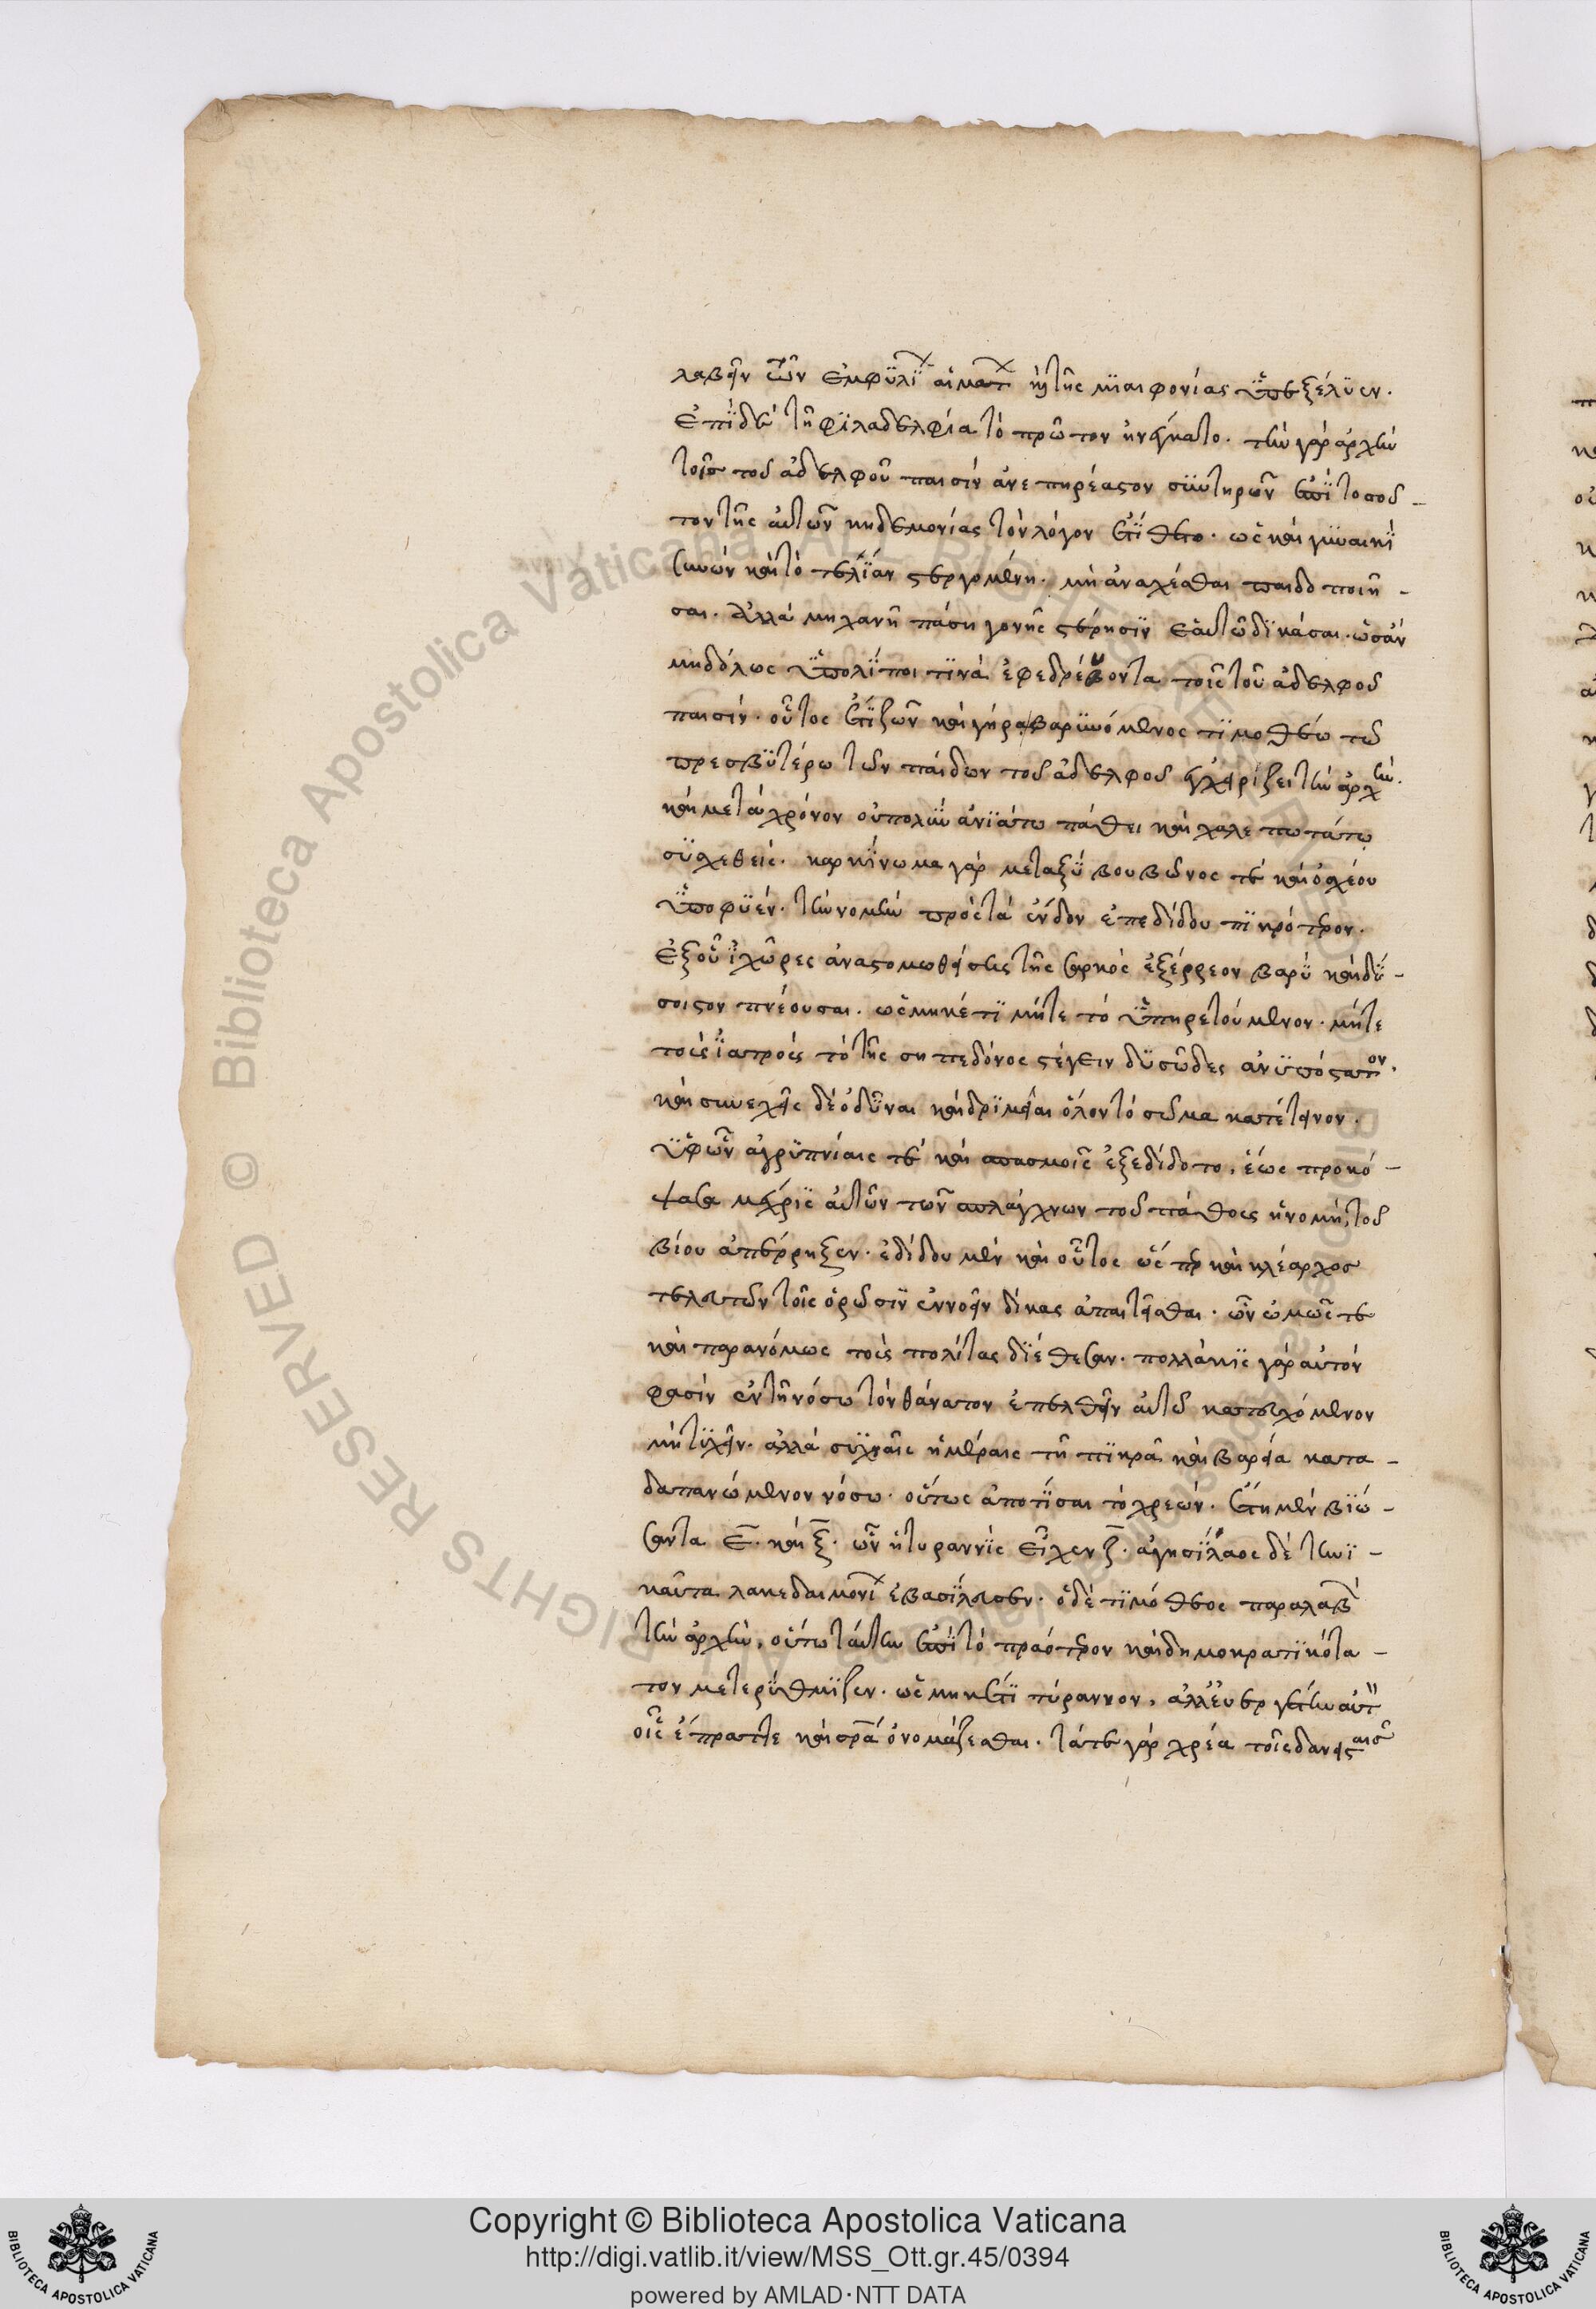 λαβεῖν τῶν ἐμφυλίων αἱμάτων καὶ τῆς μιαιφονίας ὑπεξέλυεν.
ἐπὶ δὲ τῇ φιλαδελφία τὸ πρῶτον ἠνέγκατο. τὴν γὰρ ἀρχὴν
τοῖς τοῦ ἀδελφοῦ παισὶν ἀνεπηρέαστον συντηρῶν ἐπὶ τοσοῦ-
τον τῆς αὐτῶν κηδεμονίας τὸν λόγον ἐτίθετο. ὡς καὶ γυναικὶ
συνὼν καὶ τότε λίαν στεργομένη. μὴ ἀνασχέσθαι παιδοποιῆ-
σαι. ἀλλὰ μηχανῇ πάση γονῆς στέρησιν ἑαυτῶ δικάσαι. ὡς ἂν
μηδόλως ὑπολίποι τινὰ ἐφεδρεύοντα τοῖς τοῦ ἀδελφοῦ
παισίν. οὗτος ἔτι ζῶν καὶ γήρα βαρυνόμενος τιμοθέω τῶ
πρεσβυτέρω τῶν παίδων τοῦ ἀδελφοῦ ἐγχειρίζει τὴν ἀρχὴν.
καὶ μετὰ χρόνον οὐ πολὺν ἀνιάτω πάθει καὶ χαλεπωτάτω
συσχεθείς. καρκίνωμα γὰρ μεταξὺ βουβῶνός τε καὶ ὀσχέου
ὑποφυὲν. τὴν νομὴν πρὸς τὰ ἔνδον ἐπεδίδου πικρότερον.
ἐξ οὗ ἰχῶρες ἀναστομωθείσης τῆς σαρκὸς ἐξέρρεον βαρὺ καὶ δύ-
σοιστον πνέουσαι. ὡς μηκέτι μήτε τὸ ὑπηρετούμενον. μήτε
τοὺς ἰατροὺς τὸ τῆς σηπεδόνος στέγειν δυσῶδες ἀνυπόστατον.
καὶ συνεχεῖς δὲ ὀδύναι καὶ δριμεῖαι ὅλον τὸ σῶμα κατέτεινον.
ὑφ' ὧν ἀγρυπνίαις τε καὶ σπασμοῖς ἐξεδίδοτο, ἕως προκό-
ψασα μέχρις αὐτῶν τῶν σπλάγχνων τοῦ πάθους ἡ νομὴ, τοῦ
βίου ἀπέρρηξεν. ἐδίδου μὲν καὶ οὗτος ὥσπερ καὶ κλέαρχος
τελευτῶν τοῖς ὁρῶσιν ἐννοεῖν δίκας ἀπαιτεῖσθαι. ὧν ὠμῶς τε
καὶ παρανόμως τοὺς πολίτας διέθεσαν. πολλάκις γὰρ αὐτόν
φασιν ἐν τῇ νόσω τὸν θάνατον ἐπελθεῖν αὐτῶ κατευχόμενον
μὴ τυχεῖν. ἀλλὰ συχναῖς ἡμέραις τῇ πικρᾶ καὶ βαρεία κατα-
δαπανώμενον νόσω. οὕτως ἀποτίσαι τὸ χρεών. ἔτη μὲν βιώ-
σαντα ε. καὶ ξ. ὧν ἡ τυραννὶς εἶχεν ζ. ἀγησίλαος δὲ τηνι-
καῦτα λακεδαιμονίων ἐβασίλευεν. ὁ δὲ τιμόθεος παραλαβὼν
τὴν ἀρχὴν, οὕτω ταύτην ἐπὶ τὸ πραότερον καὶ δημοκρατικώτα-
τον μετερύθμιζεν. ὡς μηκέτι τύραννον, ἀλλ' εὐεργέτην αὐτὸν
οἷς ἔπραττε καὶ σωτῆρα ὀνομάζεσθαι. τά τε γὰρ χρέα τοῖς δανεισταῖς